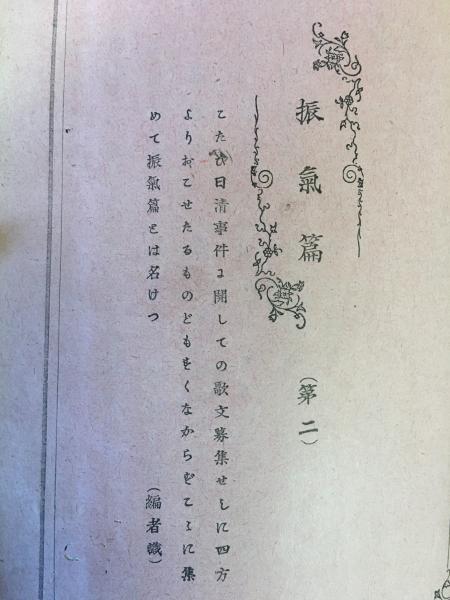 振氣篇（第二）
こたび日清事件に關しての歌文募集せしに四方
よりおこせたるものどもすくなからずこゝに集
めて振氣篇とは名けつ（編者識）